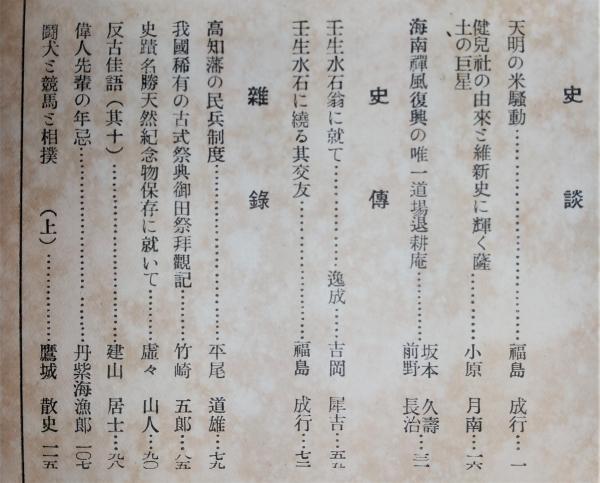 史談
天明の米騷動……福島 成行…一
健兒社の由來と維新史に輝く薩
土の巨星……小原 月南…一六
海南禪風復興の唯一道場退耕庵……坂本 久壽
前野 長治…三一
史傳
壬生水石翁に就て……逸成……吉岡 犀吉…五九
壬生水石に繞る其交友……福島 成行…七二
雜錄
高知藩の民兵制度……平尾 道雄…七九
我國稀有の古式祭典御田祭拜觀記……竹崎 五郎…八五
史蹟名勝天然紀念物保存に就いて……虛々 山人…九〇
反古佳語(其十)……建山 居士…九八
偉人先輩の年忌……丹紫海漁郎 一〇七
鬪犬と競馬と相撲 (上)……鷹城 散史 一一五